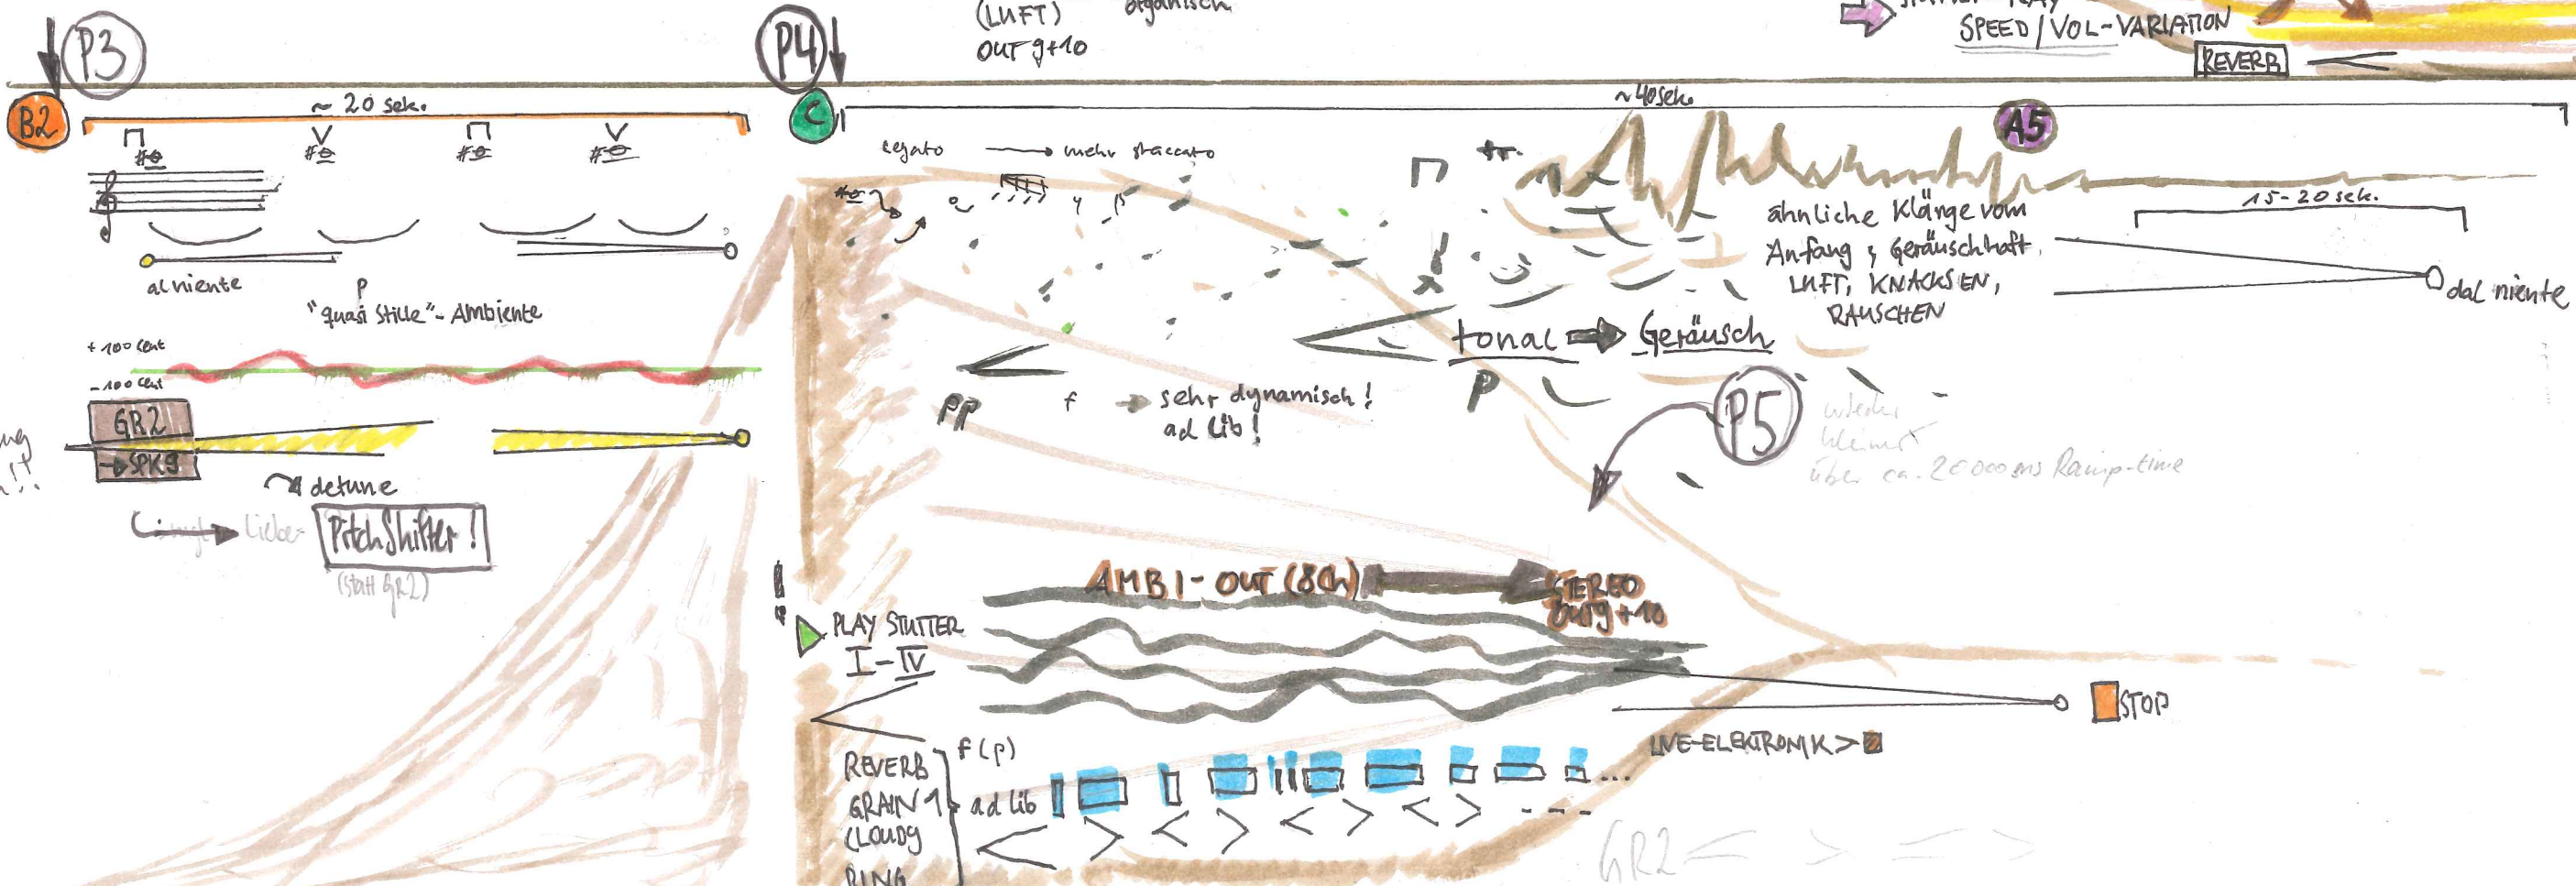 (LUFT) organisch
OUT 9+10
SPEED/VOL-VARIATION
REVERB
P3
P4
B2
~ 20 sek.
C
~40 sek.
A5
legato → mehr staccato
tr.
al niente
p
"quasi Stille"- Ambiente
+ 100 Cent
- 100 Cent
GR2
→ SPK9
detune
Lieber PitchShifter!
(statt GR2)
ähnliche Klänge vom
Anfang, Geräuschhaft
LUFT, KNACKSEN,
RAUSCHEN
15-20 sek.
dal niente
tonal → Geräusch
pp
f → sehr dynamisch!
ad lib!
p
P5
wieder
über ca. 20000ms Ramp-time
AMBI-OUT (8Ch)
STEREO
OUT 9+10
PLAY STUTTER
I-IV
STOP
LIVE-ELEKTRONIK >
f(p)
REVERB
GRAIN 1
CLOUD9
RING
ad lib
...
GR2 < > < >